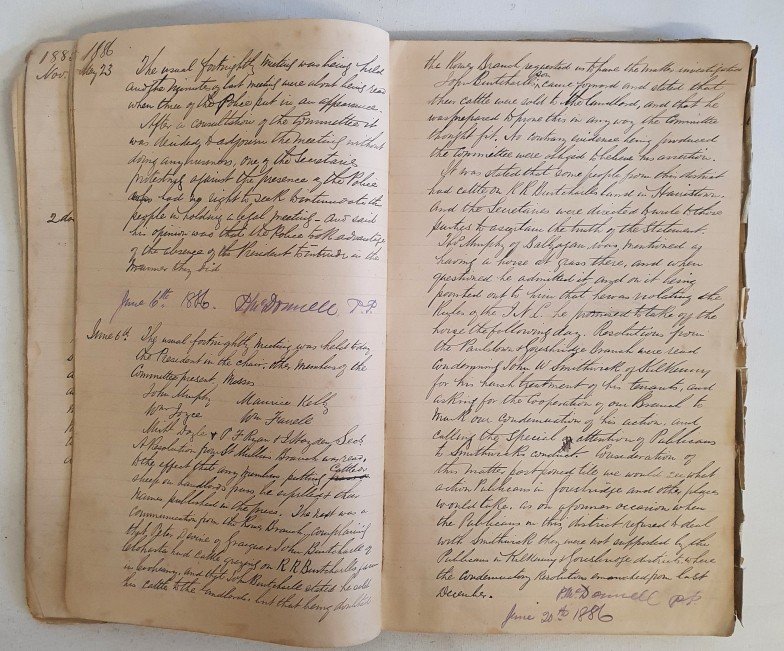 1885
Nov.
2
1886
May 23
The usual fortnightly meeting was being held
and the minutes of last meeting were about being read
when three of the Police put in an appearance.
After a consultation of the Committee it
was decided to adjourn the meeting without
doing any business, one of the Secretaries
protesting against the presence of the Police
had no right to seek to intimidate the
people in holding a legal meeting - and said
his opinion was that the Police took advantage
of the absence of the President to intrude in the
manner they did
June 6th 1886. P McDonnell P.P.
June 6th The usual fortnightly meeting was held today
the President in the chair. Other members of the
Committee present, Messrs
John Murphy Maurice Kelly
Wm Joyce Wm Farrell
Micht Doyle & P F Ryan & J Hayden Secs
A Resolution from St Mullins Branch was read
to the effect that any members putting Cattle or
sheep on landlords farms be expelled & their
names published in the press. The next was a
communication from the Rower Branch, complaining
that Peter Devine of Graigue & John Butcherlle of
had cattle grazing on R R Butcherlle's farm
in and that John Butcherlle stated he sold
his cattle to the landlord, but that being doubted
the Rower Branch requested us to have the matter investigated
John Butcherlle Son came forward and stated that
their cattle were sold to the landlord, and that he
was prepared to prove this in any way the Committee
thought fit. No contrary evidence being produced
the Committee were obliged to believe his assertion.
It was stated that some people from this district
had cattle on R R Butcherlle's land in
and the Secretaries were directed to write to those
parties to ascertain the truth of the Statement.
Thos Murphy of was mentioned as
having a horse at grass there, and when
questioned he admitted it, and on it being
pointed out to him that he was violating the
Rules of the I.N.L. he promised to take off the
horse the following day. Resolutions from
the Paulstown & Goresbridge Branch were read
condemning John W Smithwick of Kilkenny
for his harsh treatment of his tenants, and
asking for the Cooperation of our Branch to
mark our condemnation of his action, and
calling the Special attention of Publicans
to Smithwick's conduct. Consideration of
this matter postponed till we would see what
action Publicans in Goresbridge and other places
would take. as on a former occasion when
the Publicans in this district refused to deal
with Smithwick they were not supported by the
Publicans in Kilkenny & Goresbridge districts, where
the Condemnatory Resolution emanated from last
December.
P McDonnell P.P.
June 20th 1886